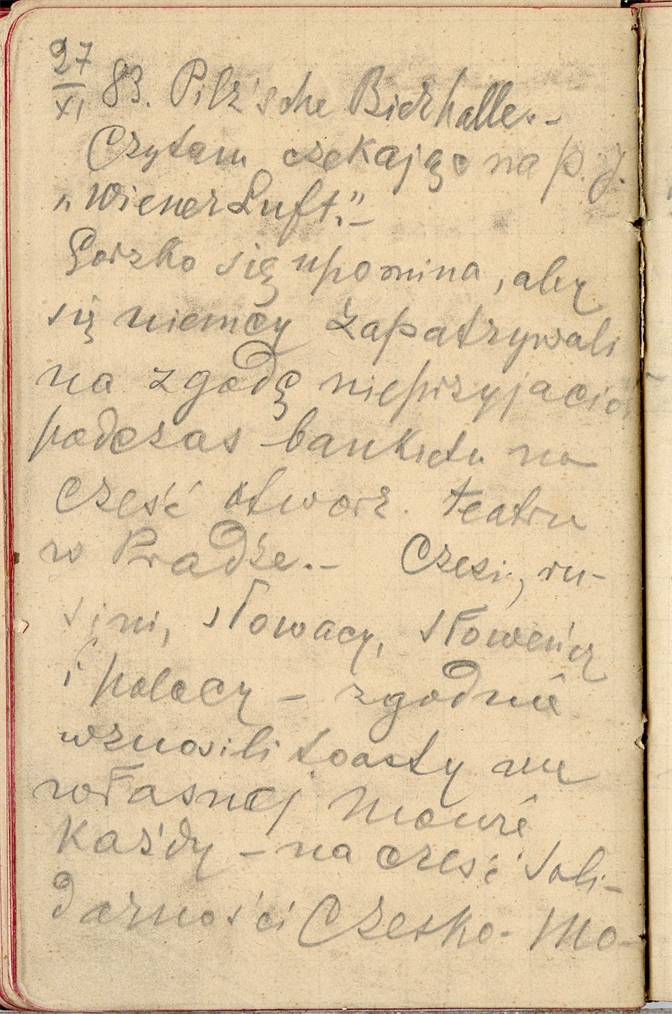 27/XI 83. Pilz'sche Bierhalle.–
Czytam czekając na p. J.
„Wiener Luft."–
Gorzko się upomina, aby
się niemcy zapatrywali
na zgodę nieprzyjaciół
podczas bankietu na
cześć otworz. teatru
w Pradze.– Czesi, ru-
sini, słowacy, słoweńcy
i polacy – zgodnie
wznosili toasty we
własnej mowie
każdy – na cześć soli-
darności Czesko-Mo-